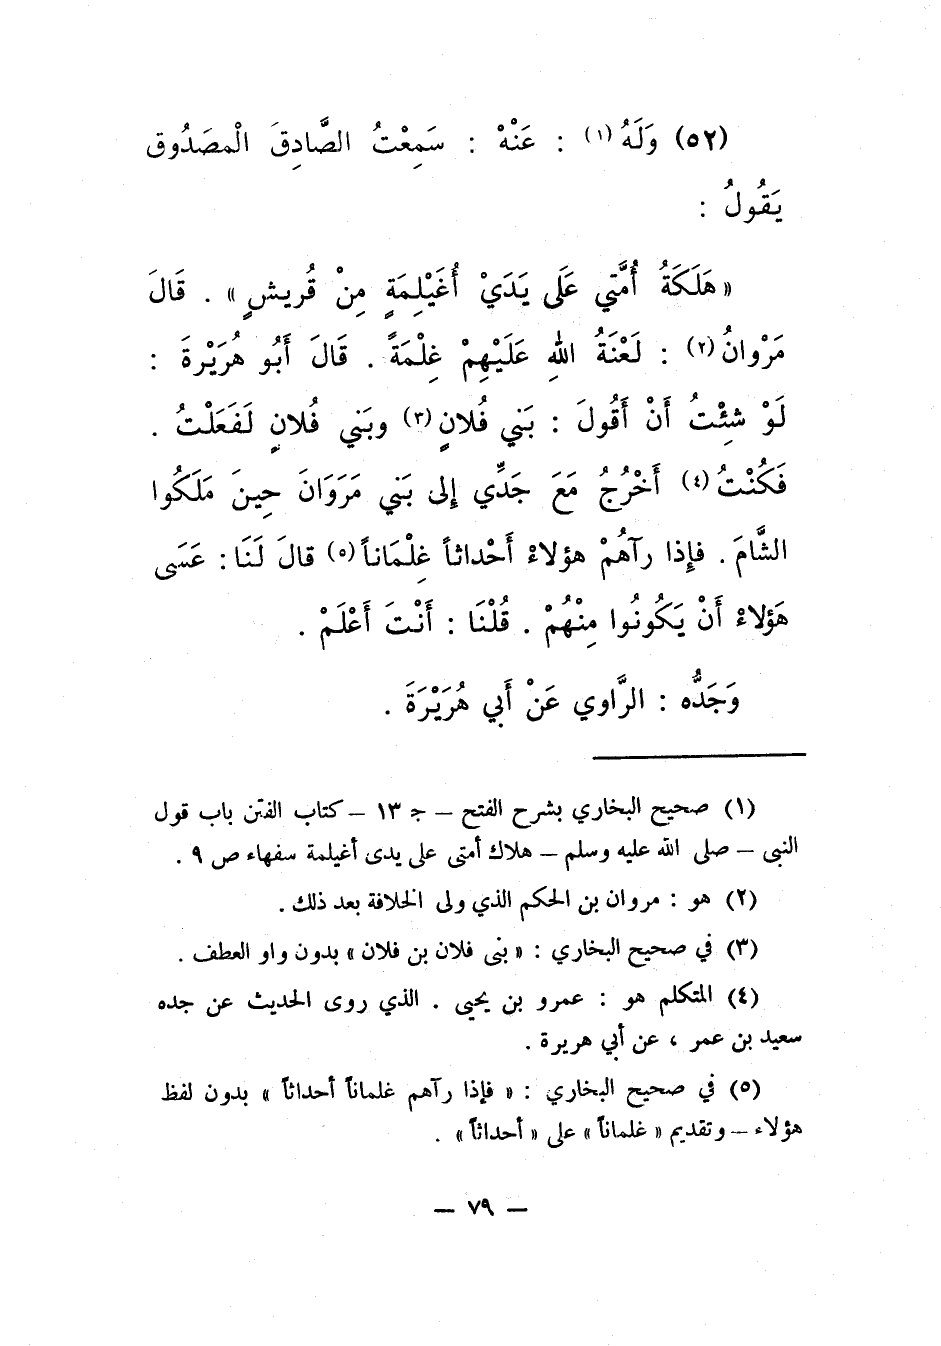 (٥٢) وَلَهُ (١) : عَنْهُ : سَمِعْتُ الصَّادِقَ الْمصَدُوق
يَقُولُ :
« هَلَكَةُ أُمَّتي عَلَى يَدَيْ أُغَيْلِمَةٍ مِنْ قُريشٍ » . قَالَ
مَرْوانُ (٢) : لَعْنَةُ اللهِ عَلَيْهِمْ غِلْمَةً . قَالَ أَبُو هُرَيْرةَ :
لَوْ شئِتُ أَنْ أَقُولَ : بَني فُلانٍ (٣) وبَني فُلانٍ لَفَعَلْتُ .
فَكُنْتُ (٤) أَخْرُجُ مَعَ جَدِّي إلى بَني مَرَوَانَ حِينَ مَلَكُوا
الشَّامَ . فإِذا رآهُمْ هؤلاءْ أَحْداثاً غِلْمَاناً (٥) قالَ لَنَا : عَسَى
هَؤلاءْ أَنْ يَكُونُوا مِنْهُمْ . قُلْنَا : أَنْتَ أَعْلَمْ .
وَجَدُّه : الرَّاوي عَنْ أَبي هُرَيْرَةَ .
(١) صحيح البخاري بشرح الفتح – جـ ١٣ – كتاب الفتن باب قول
النبى – صلى الله عليه وسلم – هلاك أمتى على يدى أغيلمة سفهاء ص ٩ .
(٢) هو : مروان بن الحكم الذي ولى الخلافة بعد ذلك .
(٣) في صحيح البخاري : « بنى فلان بن فلان » بدون واو العطف .
(٤) المتكلم هو : عمرو بن يحيى . الذي روى الحديث عن جده
سعيد بن عمر ، عن أبي هريرة .
(٥) في صحيح البخاري : « فإذا رآهم غلماناً أحداثاً » بدون لفظ
هؤلاء – وتقديم « غلماناً » على « أحداثاً » .
– ٧٩ –